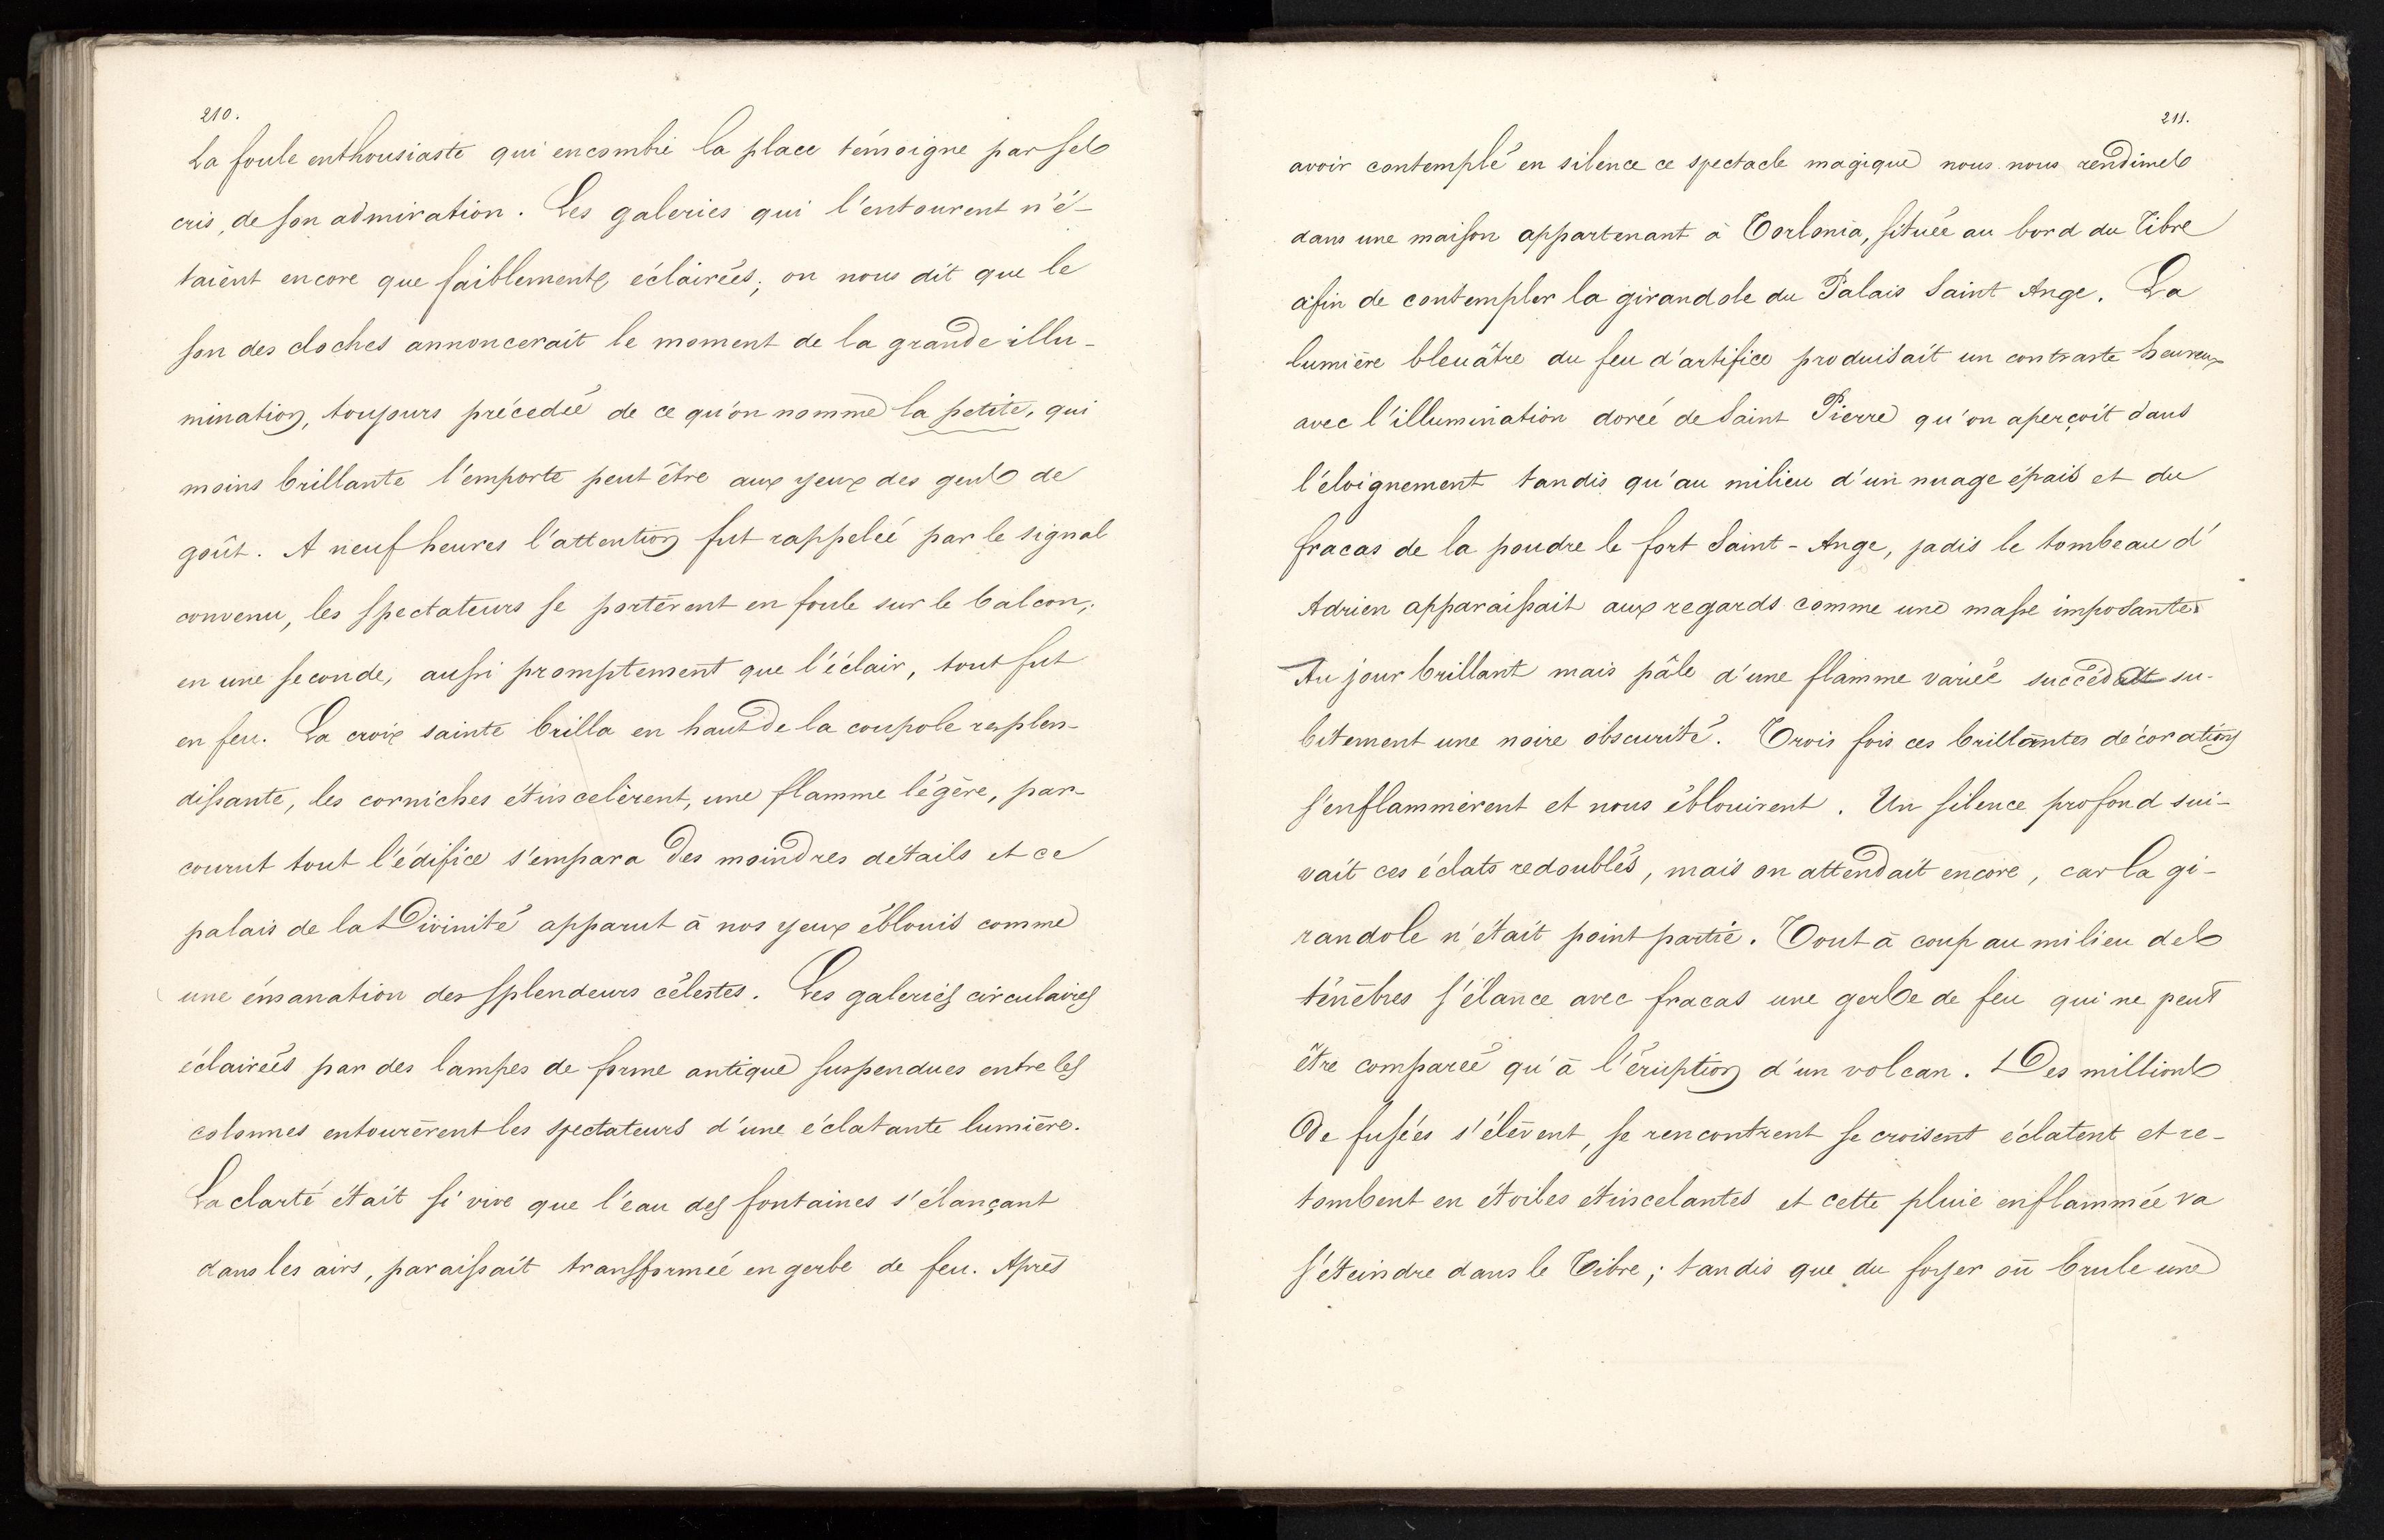 210.
La foule enthousiaste qui encombre la place témoigne par ses
cris, de son admiration. Les galeries qui l'entourent n'é-
taient encore que faiblement éclairées; on nous dit que le
son des cloches annoncerait le moment de la grande illu-
mination, toujours précédée de ce qu'on nomme la petite, qui
moins brillante l'emporte peut être aux yeux des gens de
goût. A neuf heures l'attention fut rappelée par le signal
convenu, les spectateurs se portèrent en foule sur le balcon;
en une seconde, aussi promptement que l'éclair, tout fut
en feu. La croix sainte brilla en haut de la coupole resplen-
dissante, les corniches étincelèrent, une flamme légère, par-
courut tout l'édifice s'empara des moindres détails et ce
palais de la Divinité apparut à nos yeux éblouis comme
une émanation des splendeurs célestes. Les galeries circulaires
éclairées par des lampes de forme antique suspendues entre les
colonnes entourèrent les spectateurs d'une éclatante lumière.
La clarté était si vive que l'eau des fontaines s'élançant
dans les airs, paraissait transformée en gerbe de feu. Après
211.
avoir contemplé en silence ce spectacle magique nous nous rendimes
dans une maison appartenant à Torlonia, située au bord du Tibre
afin de contempler la girandole du Palais Saint Ange. La
lumière bleuâtre du feu d'artifice produisait un contraste heureux
avec l'illumination dorée de Saint Pierre qu'on aperçoit dans
l'éloignement tandis qu'au milieu d'un nuage épais et du
fracas de la poudre le fort Saint-Ange, jadis le tombeau d'
Adrien apparaissait aux regards comme une masse imposante.
Au jour brillant mais pâle d'une flamme variée succédait su-
bitement une noire obscurité. Trois fois ces brillantes décorations
s'enflammèrent et nous éblouirent. Un silence profond sui-
vait ces éclats redoublés, mais on attendait encore, car la gi-
randole n'était point partie. Tout à coup au milieu des
ténèbres s'élance avec fracas une gerbe de feu qui ne peut
être comparée qu'à l'éruption d'un volcan. Des millions
de fusées s'élèvent, se rencontrent se croisent éclatent et re-
tombent en étoiles étincelantes et cette pluie enflammée va
s'éteindre dans le Tibre; tandis que du foyer où brule une